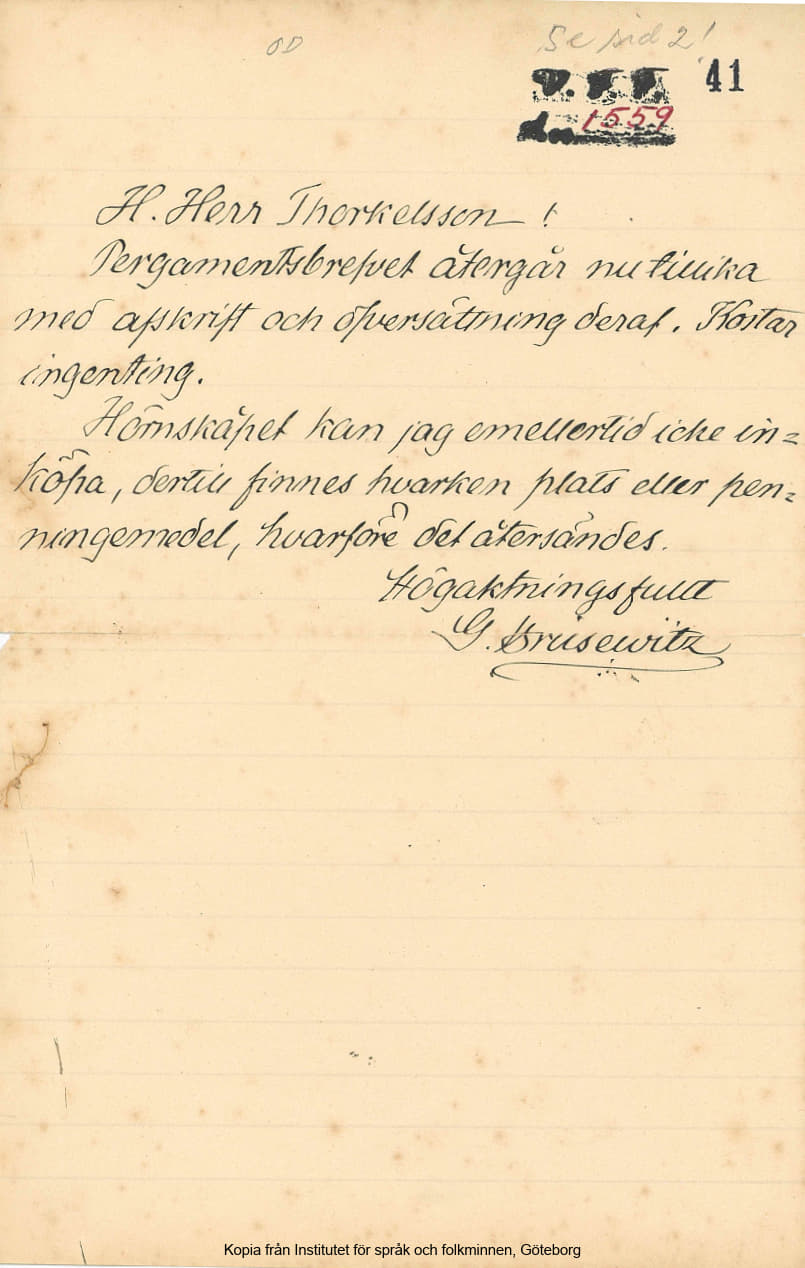 OD
Se sid 2!
V. F. F. 41
1559
H. Herr Thorkelsson !
Pergamentsbrefvet återgår nu tillika
med afskrift och öfversättning deraf. Kostar
ingenting.
Hörnskåpet kan jag emellertid icke in=
köpa, dertill finnes hvarken plats eller pen=
ningemedel, hvarföre det återsändes.
Högaktningsfullt
G. Brusewitz
Kopia från Institutet för språk och folkminnen, Göteborg